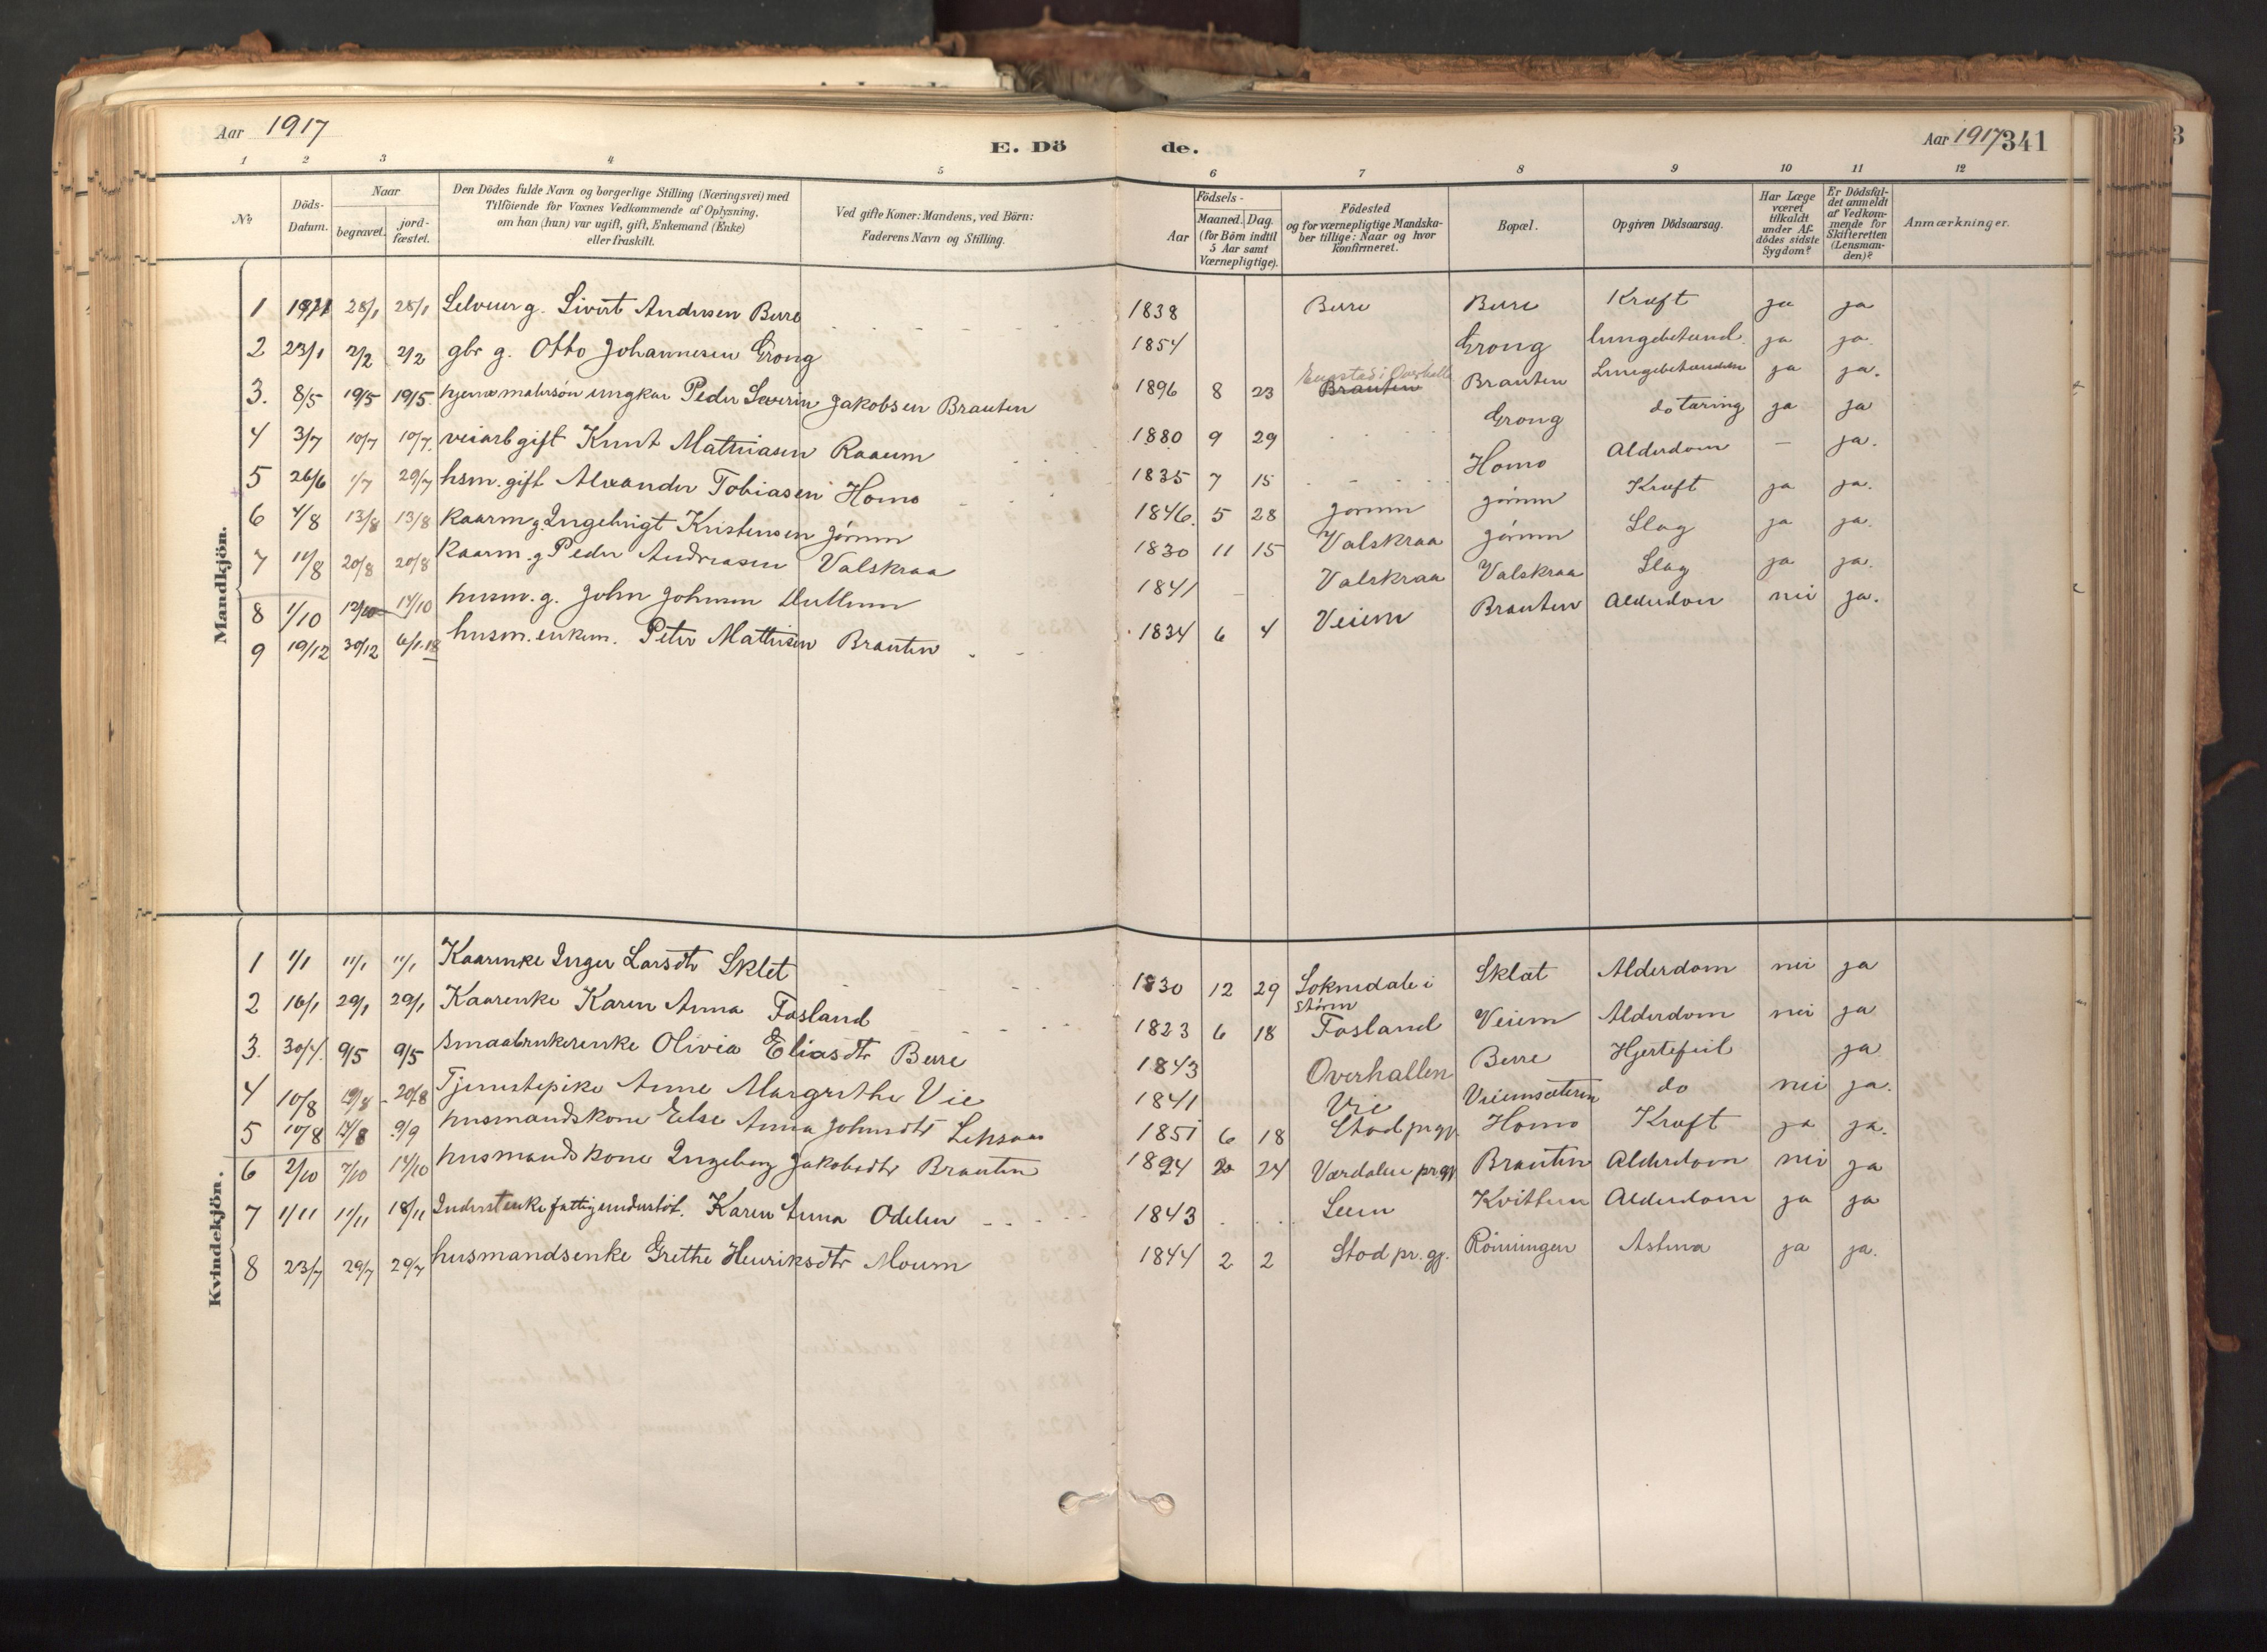 Aar 1917
E. Dö
de.
Aar 1917 341
1 2 3 4 5 6 7 8 9 10 11 12
№
Döds-Datum.
Naar
begravet.
jord-fæstet.
Den Dödes fulde Navn og borgerlige Stilling (Næringsvei) med
Tilföiende for Voxnes Vedkommende af Oplysning,
om han (hun) var ugift, gift, Enkemand (Enke)
eller fraskilt.
Ved gifte Koner: Mandens, ved Börn:
Faderens Navn og Stilling.
Födsels-
Aar
Maaned. Dag.
(for Börn indtil
5 Aar samt
Værnepligtige).
Födested
og for værnepligtige Mandska-
ber tillige: Naar og hvor
konfirmeret.
Bopæl.
Opgiven Dödsaarsag.
Har Læge
været
tilkaldt
under Af-
dödes sidste
Sygdom?
Er Dödsfal-
det anmeldt
af Vedkom-
mende for
Skifteretten
(Lensman-
den)?
Anmærkninger.
Mandkjön.
1 28/1 28/1 Selveier g. Sivert Andersen Berre 1838 Berre Berre Kræft ja ja
2 23/1 2/2 2/2 gbr g. Otto Johannesen Grong 1854 Grong lungebetænd. ja ja
3. 8/5 19/5 19/5. hjemmeværsøn ungkar Peder Severin Jakobsen Brauten 1896 8 23 Engstad i Overhalla Brauten Brauten Lungebetændelse ja ja.
4 3/7 10/7 10/7. veiarb gift Knut Mathiasen Raaum 1880 9 29 Grong do tæring ja ja
5 26/6 1/7 29/7 hsm. gift Alexander Tobiasen Homo 1835 7 15 Homo Alderdom — ja.
6 4/8 13/8 13/8 Kaarm g. Ingebrigt Kristensen Jørum 1846. 5 28 Jørum Jørum Kræft ja ja.
7 11/8 20/8 20/8 Kaarm. g Peder Andreasen Valskraa 1830 11 15 Valskraa Jørum Slag ja ja.
8 1/10 12/10 14/10 husm. g. John Johnsen 1841 Valskraa Valskraa Slag ja ja.
9 19/12 30/12 6/1.18 husm. enkem. Peter Mathisen Brauten 1834 6 4 Veiem Brauten Alderdom nei ja.
Kvindekjön.
1 1/1 11/1 11/1 Kaarenke Inger Larsdtr Sklet 1830 12 29 Soknedalen i Støren Sklet Alderdom nei ja
2 16/1 29/1 29/1 Kaarenke Karen Anna Fosland 1823 6 18 Fosland Veiem Alderdom nei ja
3. 30/4. 9/5 9/5 Smaabrukerenke Olivia Eliasdtr Berre 1843 Overhallen Berre Hjertefeil ja
4 10/8 19/8 20/8 Tjenestepike Anne Margrethe Vie 1841 Vie Veiemsæteren do nei ja.
5 10/8 14/8 9/9 husmandskone Else Anna Johnsdtr 1851 6 18 Stod prgj. Homo Kræft ja ja.
6 2/10 7/10 14/10 husmandskone Ingeborg Jakobsdtr Brauten 1824 2 24 Værdalen prgj Brauten Alderdom nei ja
7 1/11 11/11 18/11 Inderstenke fattigunderstøt. Karen Anna Odelien 1843 Seem Kvittum Alderdom ja ja
8 23/7 29/7 29/7 husmandsenke Grethe Henriksdtr Moum 1844 2 2 Stod pr. gj. Rönningen Astma ja ja.